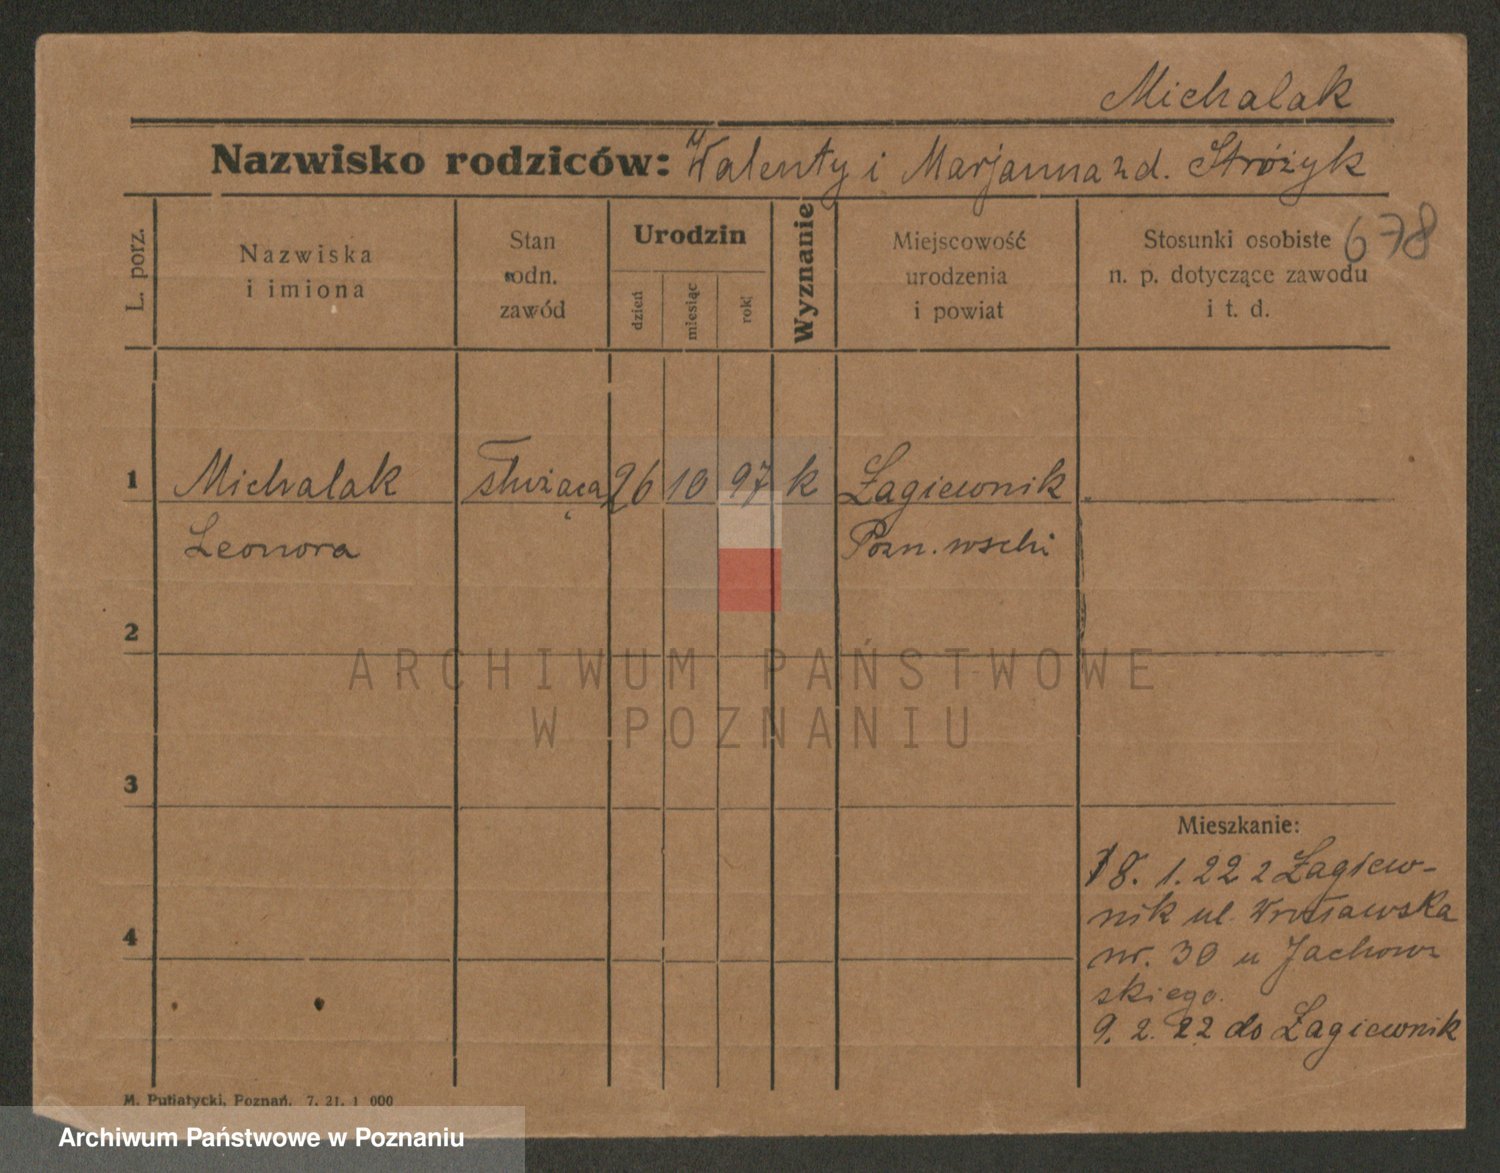 Michalak
Nazwisko rodziców: Walenty i Marjanna z d. Stróżyk
L. porz.
Nazwiska
i imiona
Stan
odn.
zawód
Urodzin
dzień
miesiąc
rok
Wyznanie
Miejscowość
urodzenia
i powiat
Stosunki osobiste
n. p. dotyczące zawodu
i t. d.
678
1 Michalak służąca 26 10 97 k Łagiewnik
Leonora Pozn. wschi
2
ARCHIWUM PAŃSTWOWE
W POZNANIU
3
Mieszkanie:
18. 1. 22 z Łagiew-
nik ul. Wrocławska
nr. 30 u Jachow
skiego.
4
9. 2. 22 do Łagiewnik
M. Putiatycki, Poznań. 7. 21. 1 000
Archiwum Państwowe w Poznaniu